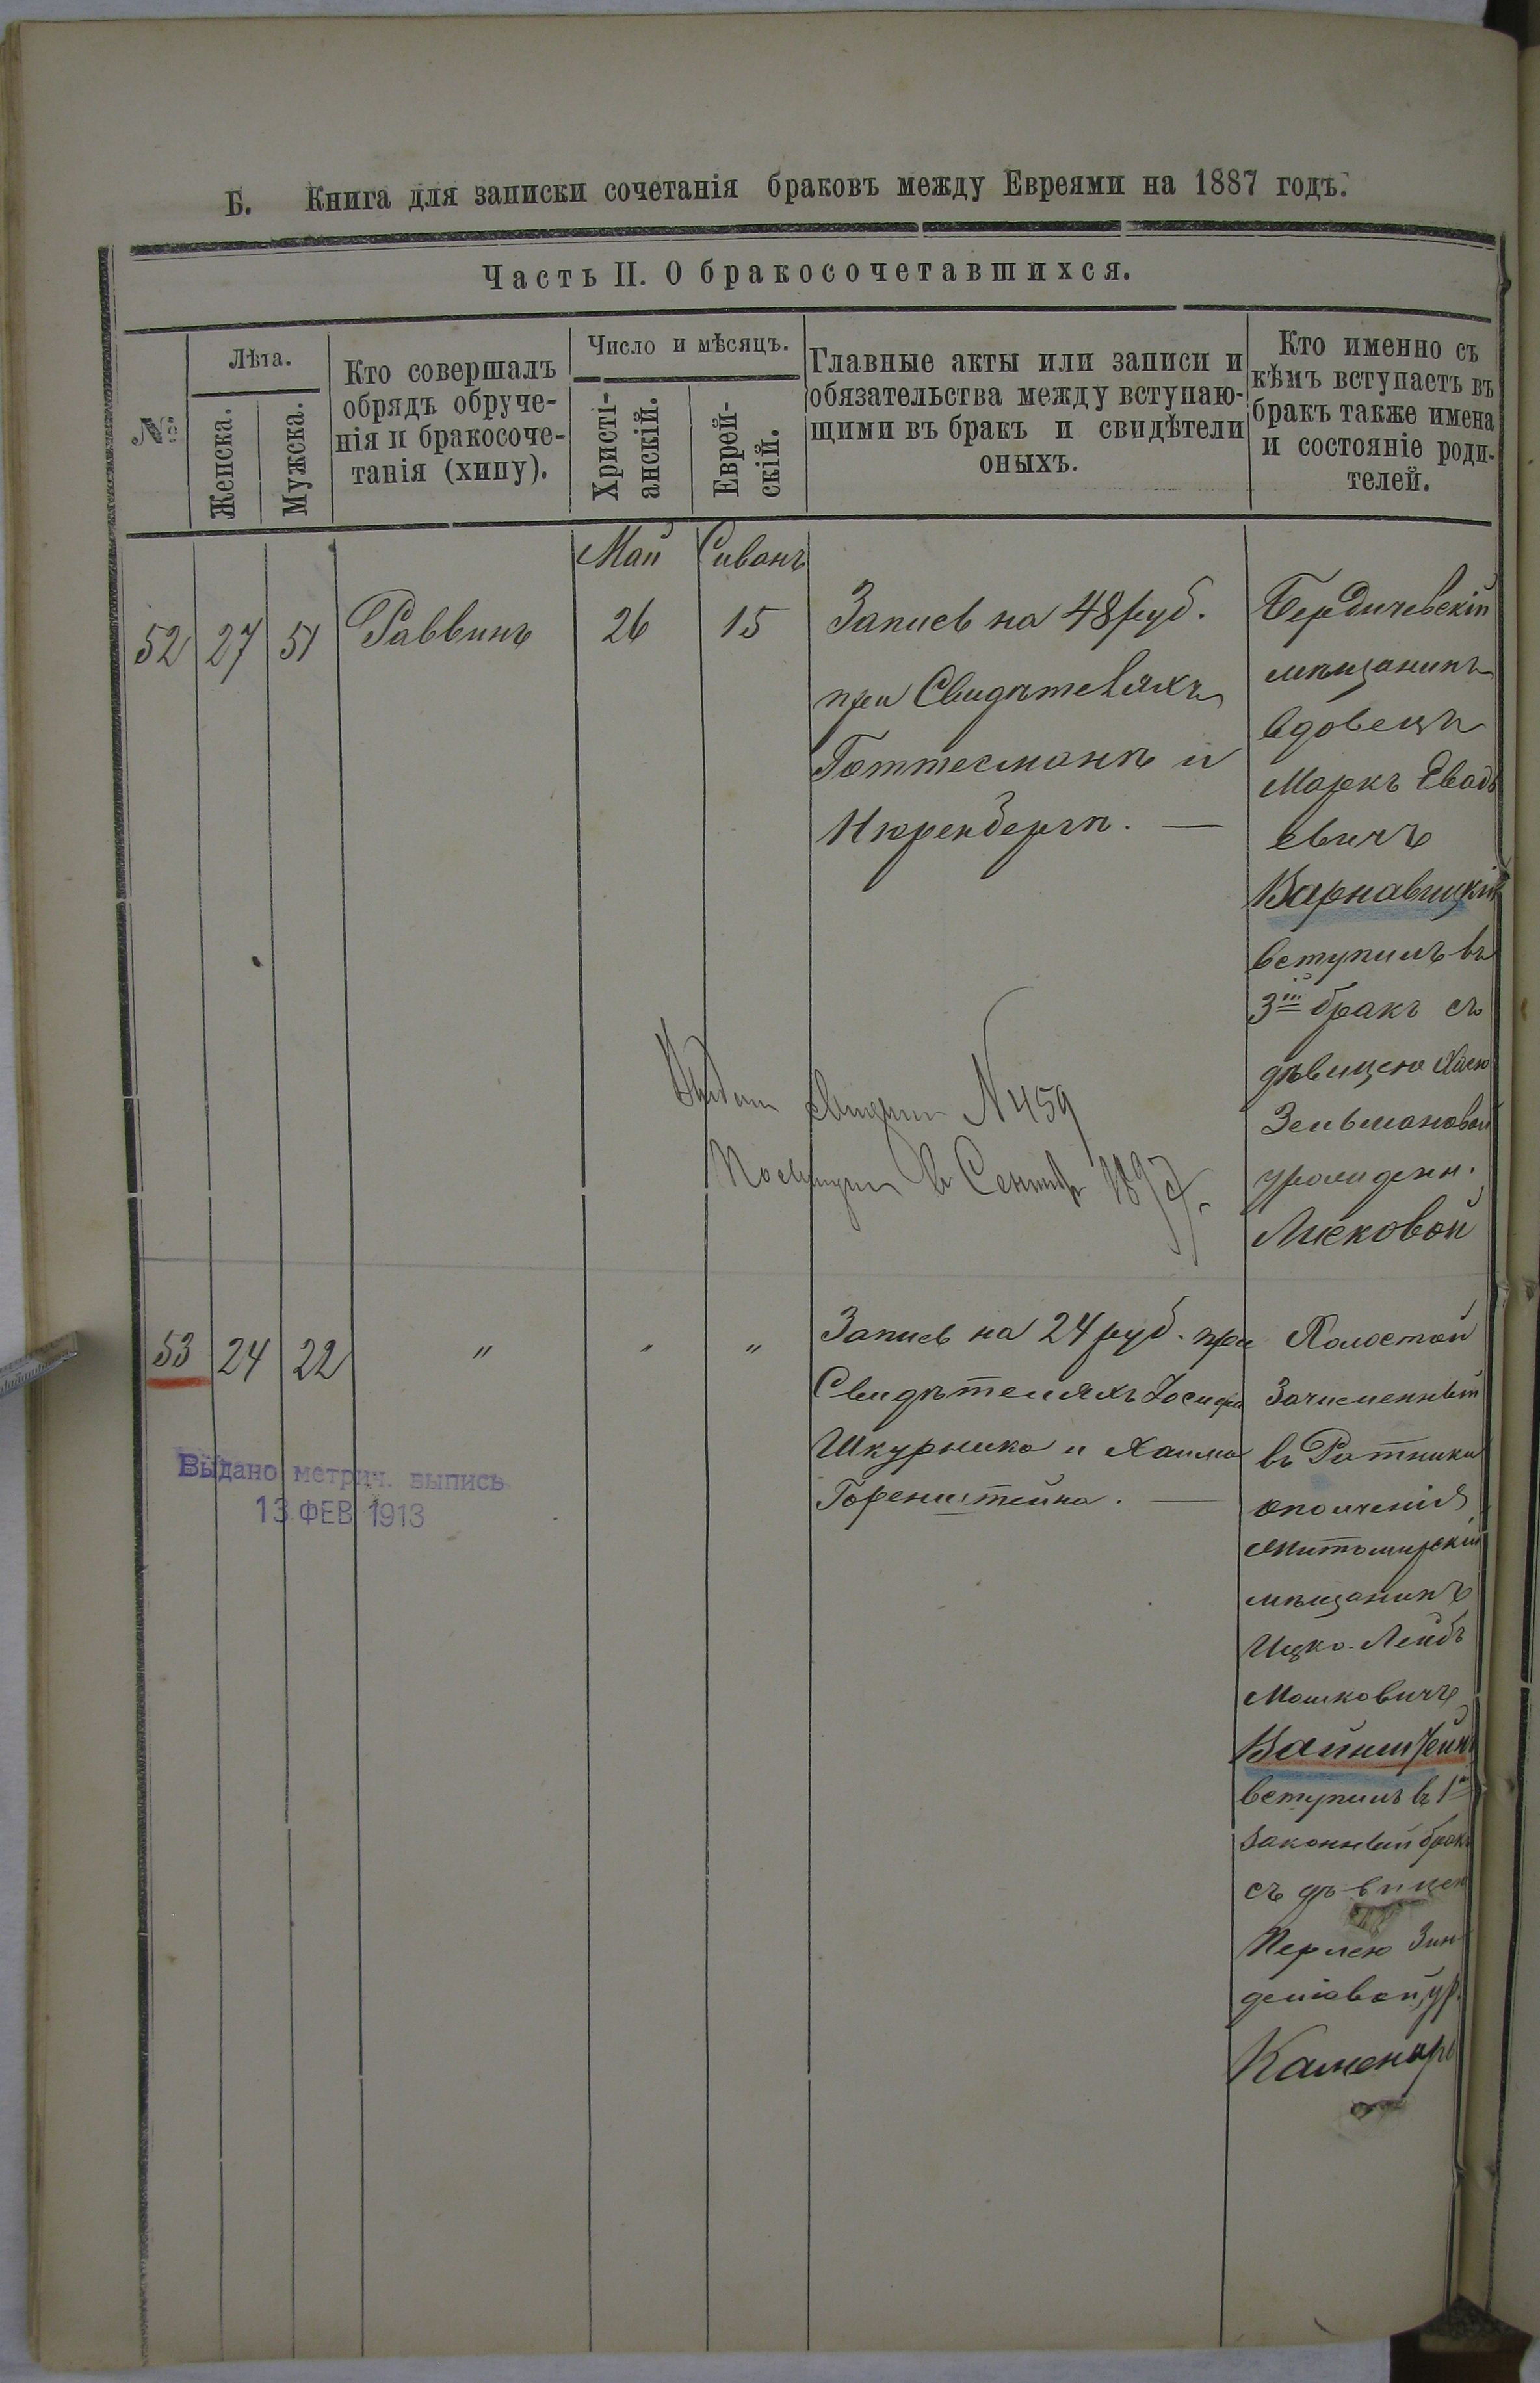 Б. Книга для записки сочетанія браковъ между Евреями на 1887 годъ.
Часть II. О бракосочетавшихся.
№
Лѣта.
Женска.
Мужска.
Кто совершалъ
обрядъ обруче-
нія и бракосоче-
танія (хипу).
Число и мѣсяцъ.
Христі-
анскій.
Еврей-
скій.
Главные акты или записи и
обязательства между вступаю-
щими въ бракъ и свидѣтели
оныхъ.
Кто именно съ
кѣмъ вступаетъ въ
бракъ также имена
и состояніе роди-
телей.
Май Сиванъ
52 27 51 Раввинъ 26 15
Запись на 48 руб.
при Свидѣтеляхъ
Готтесманѣ и
Нюренбергѣ. —
Бердичевскій
мѣщанинъ
вдовецъ
Маркъ
евичъ
Варнавицкій
вступилъ въ
3й бракъ съ
дѣвицею Хаею
Зельмановой
урожденн.
Лисковой
N 459
в 1897.
53 24 22 " " "
Запись на 24 руб. при
Свидѣтеляхъ Іосифа
Шкурника и Хаима
Горенштейна. —
Холостой
Зачисленный
въ Ратники
ополченія
Житомирскій
мѣщанинъ
Ицко-Лейбъ
Мошковичъ
Вайнштейнъ
вступилъ въ 1й
законный бракъ
съ дѣвицею
Перлею Зин-
деліовой, ур.
Каменарь
Выдано метрич. выпись
13 ФЕВ 1913